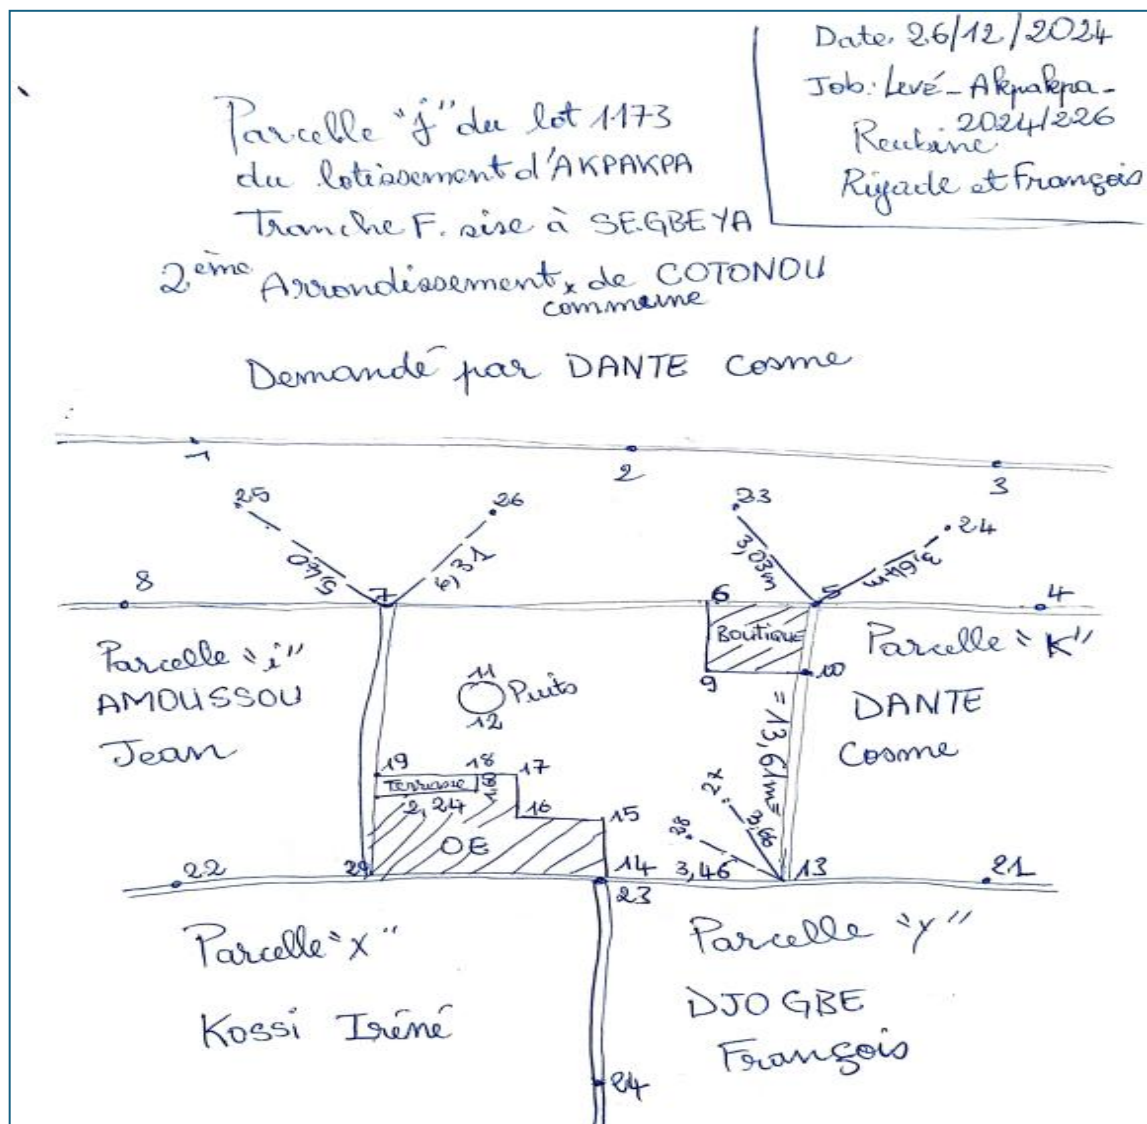 Date. 26/12/2024
Job: Levé-Akpakpa-
2024/226
Rigade et François
Parcelle "j" du lot 1173
du lotissement d'AKPAKPA
Tranche F. sise à SEGBEYA
2ème Arrondissement x de COTONOU
commune
Demandé par DANTE Cosme
1
2
3
25
26
23
24
5,40
6,31
3,03m
3,64m
8
7
6
5
4
Boutique
Parcelle "i"
AMOUSSOU
Jean
Parcelle "K"
DANTE
Cosme
11
Puits
12
9
10
=13,61m=
19
18
17
Terrasse
2,24
16
15
OE
27
28
3,66
3,46
22
14
13
21
23
Parcelle "x"
Kossi Iréné
Parcelle "y"
DJOGBE
François
24